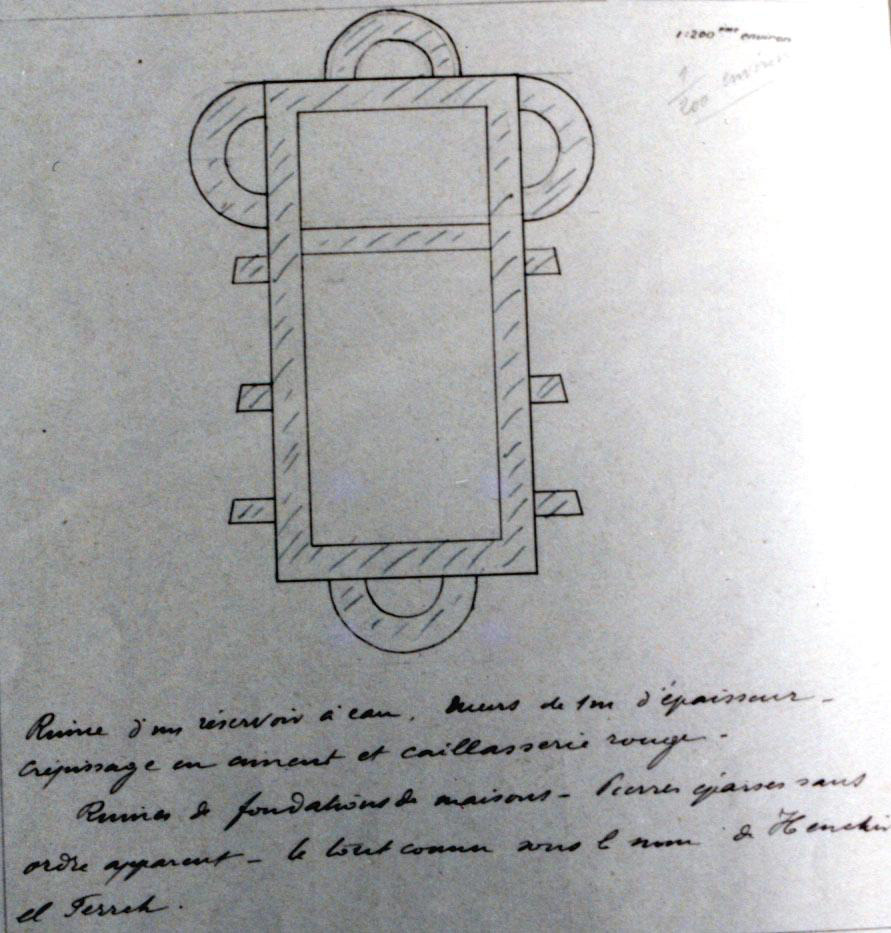 1:200 ème environ
1/200 environ
Ruine d'un réservoir à eau. Murs de 1m d'épaisseur –
Crépissage en ciment et caillasserie rouge –
Ruines de fondations de maisons – Pierres éparses sans
ordre apparent – le tout connu sous le nom de Henchir
el Ferreh.